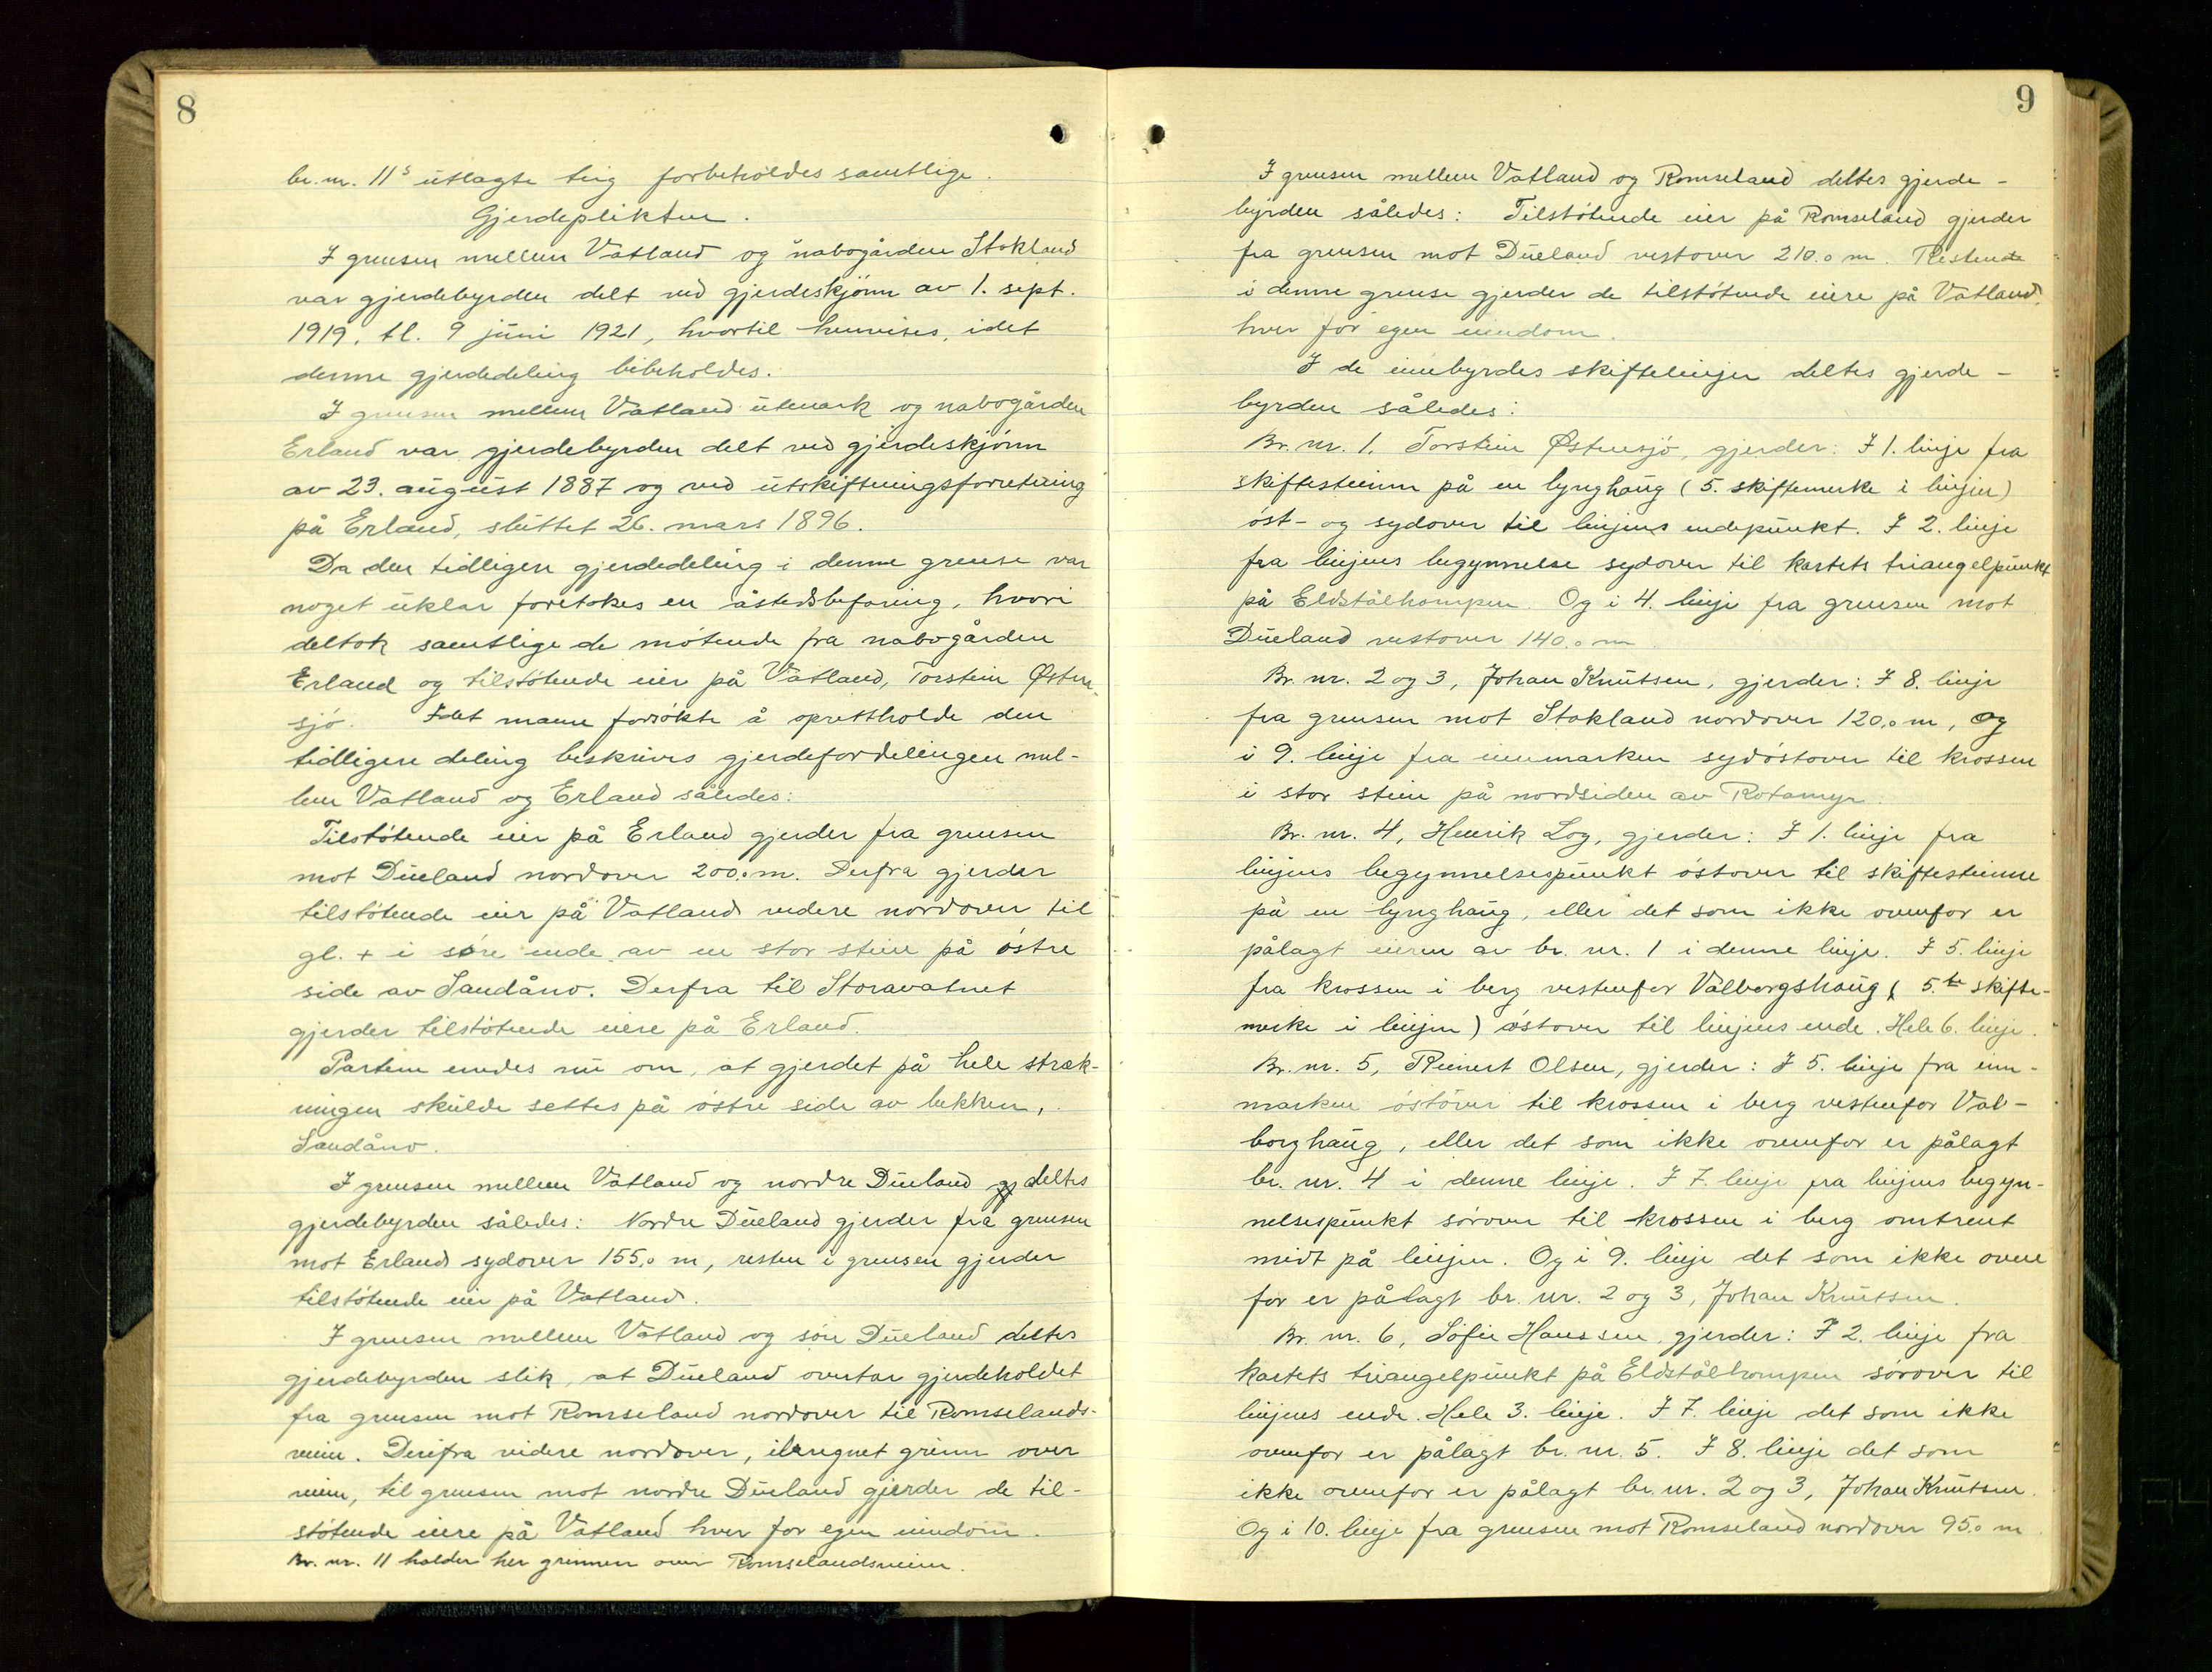 8
br.nr. 11s utlagte teig forbeholdes samtlige.
Gjerdeplikten.
I grensen mellem Vatland og nabogården Stokland
var gjerdebyrden delt ved gjerdeskjönn av 1. sept.
1919, tl. 9 juni 1921, hvortil henvises, idet
denne gjerdedeling bibeholdes.
I grensen mellem Vatland utmark og nabogården
Erland var gjerdebyrden delt ved gjerdeskjönn
av 23. august 1887 og ved utskiftningsforretning
på Erland, sluttet 26. mars 1896.
Da den tidligere gjerdedeling i denne grense var
noget uklar foretokes en åstedsbefaring, hvori
deltok samtlige de mötende fra nabogården
Erland og tilstötende eier på Vatland, Torstein Østen-
sjö. Idet mann forsökte å oprettholde den
tidligere deling beskrives gjerdefordelingen mel-
lem Vatland og Erland således:
Tilstötende eier på Erland gjerder fra grensen
mot Dueland nordover 200.0 m. Derfra gjerder
tilstötende eier på Vatland videre nordover til
gl. + i söre ende av en stor stein på östre
side av Sandåno. Derfra til Storavatnet
gjerder tilstötende eiere på Erland.
Partene enedes nu om, at gjerdet på hele stræk-
ningen skulde settes på östre side av bekken,
Sandåno.
I grensen mellem Vatland og nordre Dueland gj deltes
gjerdebyrden således: Nordre Dueland gjerder fra grensen
mot Erland sydover 155,0 m, resten i grensen gjerder
tilstötende eier på Vatland.
I grensen mellem Vatland og söre Dueland deltes
gjerdebyrden slik, at Dueland overtar gjerdeholdet
fra grensen mot Romseland nordover til Romselands-
veien. Derifra videre nordover, iberegnet grinn over
veien, til grensen mot nordre Dueland gjerder de til-
stötende eiere på Vatland hver for egen eiendom.
Br. nr. 11 holder her grinnen over Romselandsveien.
9
I grensen mellem Vatland og Romseland deltes gjerde-
byrden således: Tilstötende eier på Romseland gjerder
fra grensen mot Dueland vestover 210.0 m. Restende
i denne grense gjerder de tilstötende eiere på Vatland,
hver for egen eiendom.
I de innbyrdes skiftelinjer deltes gjerde-
byrden således:
Br. nr. 1. Torstein Østensjö, gjerder: I 1. linje fra
skiftesteinen på en lynghaug (5. skiftemerke i linjen)
öst- og sydover til linjens endepunkt. I 2. linje
fra linjens begynnelse sydover til kartets triangelpunkt
på Eldstålhompen. Og i 4. linje fra grensen mot
Dueland vestover 140.0 m
Br. nr. 2 og 3, Johan Knutsen, gjerder: I 8. linje
fra grensen mot Stokland nordover 120,0 m, og
i 9. linje fra innmarken sydöstover til krossen
i stor stein på nordsiden av Rotamyr.
Br. nr. 4, Henrik Log, gjerder: I 1. linje fra
linjens begynnelsespunkt östover til skiftesteinene
på en lynghaug, eller det som ikke ovenfor er
pålagt eieren av br. nr. 1 i denne linje. I 5. linje
fra krossen i berg vestenfor Valborgshaug ( 5.te skifte-
merke i linjen) östover til linjens ende. Hele 6. linje.
Br. nr. 5, Reinert Olsen, gjerder: I 5. linje fra inn-
marken östover til krossen i berg vestenfor Val-
borghaug, eller det som ikke ovenfor er pålagt
br. nr. 4 i denne linje. I 7. linje fra linjens begyn-
nelsespunkt sörover til krossen i berg omtrent
midt på linjen. Og i 9. linje det som ikke oven
for er pålagt br. nr. 2 og 3, Johan Knutsen.
Br. nr. 6, Sofie Hanssen, gjerder: I 2. linje fra
kartets triangelpunkt på Eldstålhompen sörover til
linjens ende. Hele 3. linje. I 7. linje det som ikke
ovenfor er pålagt br. nr. 5. I 8. linje det som
ikke ovenfor er pålagt br. nr. 2 og 3, Johan Knutsen.
Og i 10. linje fra grensen mot Romseland nordover 95.0 m